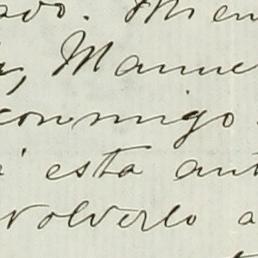 ado. Mien
, Manue
conmigo
esta ant
volverlo a